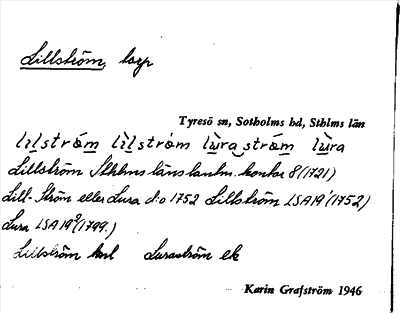 Lillström, torp
Tyresö sn, Sotholms hd, Sthlms län
lılström lìlström lùra ström lùra
Lillström Sthlms läns lantm. kontor 8 (1721)
Lill-Ström eller Lura d:o 1752 Lillström LSA 19¹ (1752)
Lura LSA 19² (1799.)
Lillström krtl Luraström ek
Karin Grafström 1946